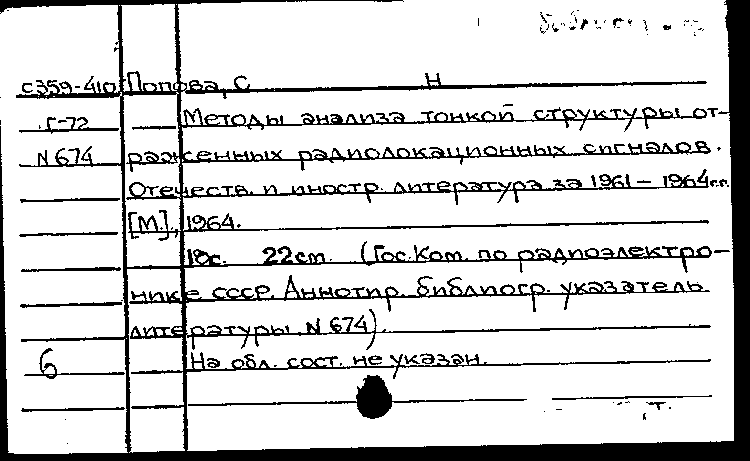 С359-410 Попова, С Н
Г-72 Методы анализа тонкой структуры от-
N 674 раженных радиолокационных сигналов.
Отечеств. и иностр. литература за 1961 – 1964гг.
[М.], 1964.
18с. 22cm. (Гос. Ком. по радиоэлектро-
нике СССР. Аннотир. библиогр. указатель
литературы. N 674).
6 На обл. сост. не указан.